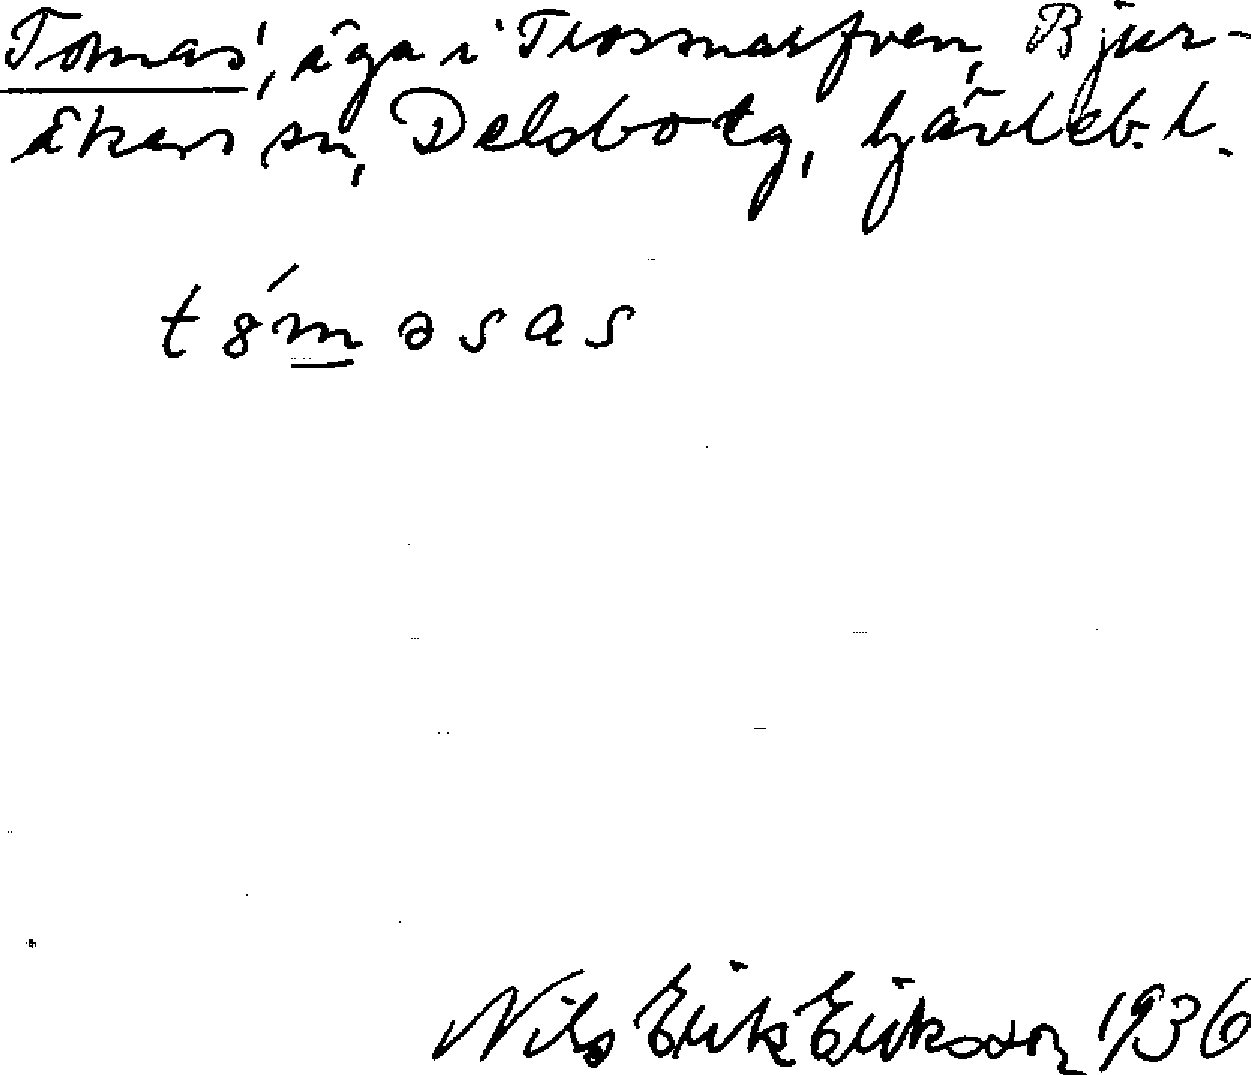 Tomas', äga i Trossnarfven, Bjur-
åkers sn, Delsbo tg, Gävleb. l.
t8́m əsas
Nils Erik Eriksson 1936